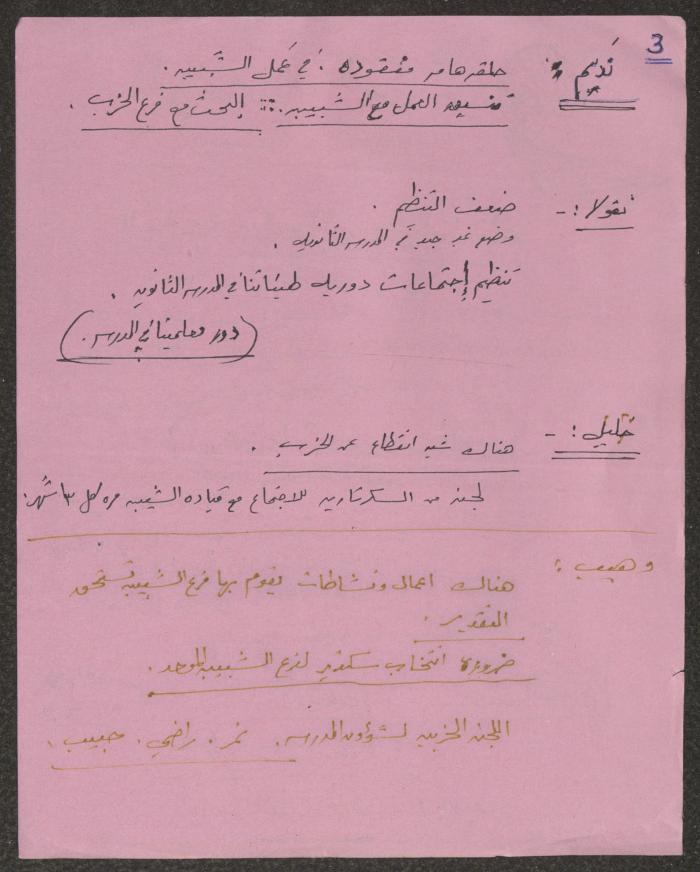 3
نديم : حلقه هامه مفقوده : في عمل الشبيبه .
تنسيق العمل مع الشبيبه . :: البحث مع فرع الحزب .
نقولا : - ضعف التنظيم .
وضع غير جيد في المدرسه الثانويه .
تنظيم إجتماعات دوريه في المدرسه الثانويه .
( دور معلمينا في المدرسه . )
خليل : - هناك شبه انقطاع عن الحزب .
لجنه من السكرتاريه للاجتماع مع قياده الشبيبه مره كل ٣ اشهر .
وهيب : هناك اعمال ونشاطات يقوم بها فرع الشبيبه تستحق
التقدير .
ضروره انتخاب سكرتير لفرع الشبيبه الموحد .
اللجنه الحزبيه لشؤون المدرسه . نمر . راضي . حبيب .